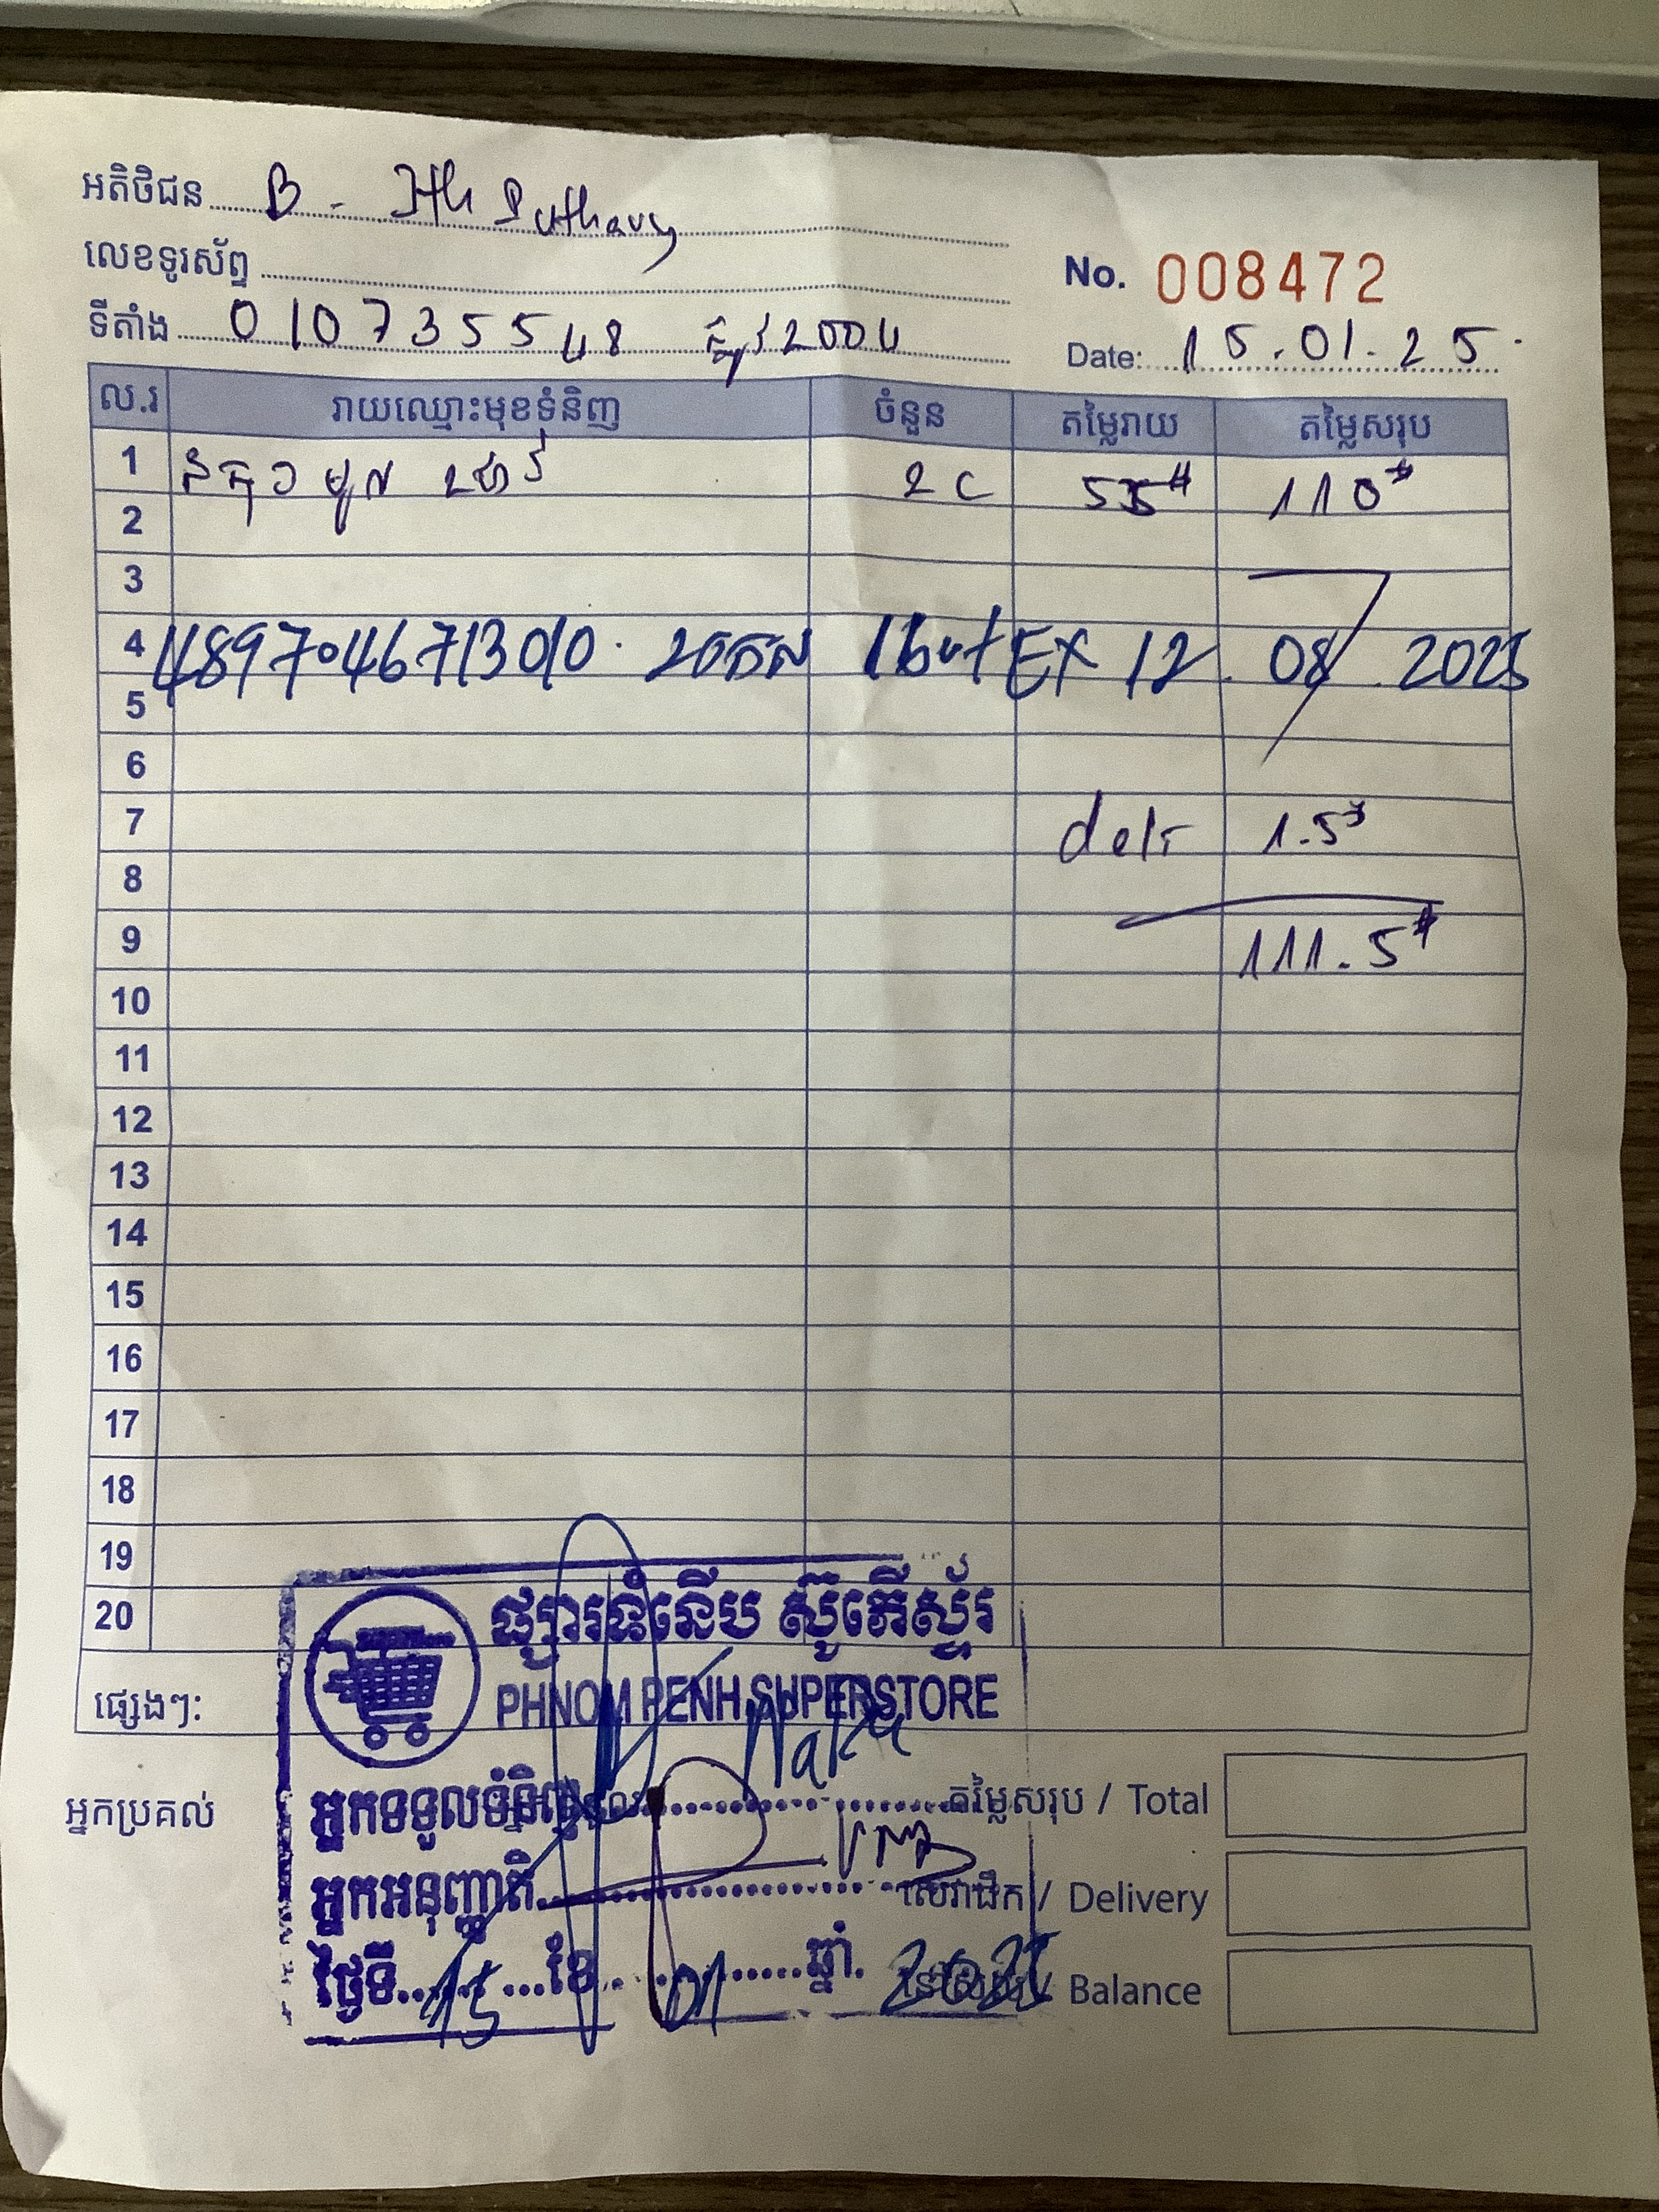 អតិថិជន B - Puthavy
លេខទូរស័ព្ទ
No. 008472
ទីតាំង 010735548 2004
Date: 15.01.25
ល.រ រាយឈ្មោះមុខទំនិញ ចំនួន តម្លៃរាយ តម្លៃសរុប
1 2C 55$ 110$
2
3
4 4897046713010. EX 12.08.2025
5
6
7 deli 1.5$
8
9 111.5$
10
11
12
13
14
15
16
17
18
19
20
ផ្សារទំនើប ស៊ូភើស្ទ័រ
PHNOM PENH SUPERSTORE
ផ្សេងៗ:
អ្នកប្រគល់
អ្នកទទួលទំនិញ
តម្លៃសរុប / Total
អ្នកអនុញ្ញាតិ
សេវាដឹក / Delivery
ថ្ងៃទី 15 ខែ 01 ឆ្នាំ. 2025
Balance